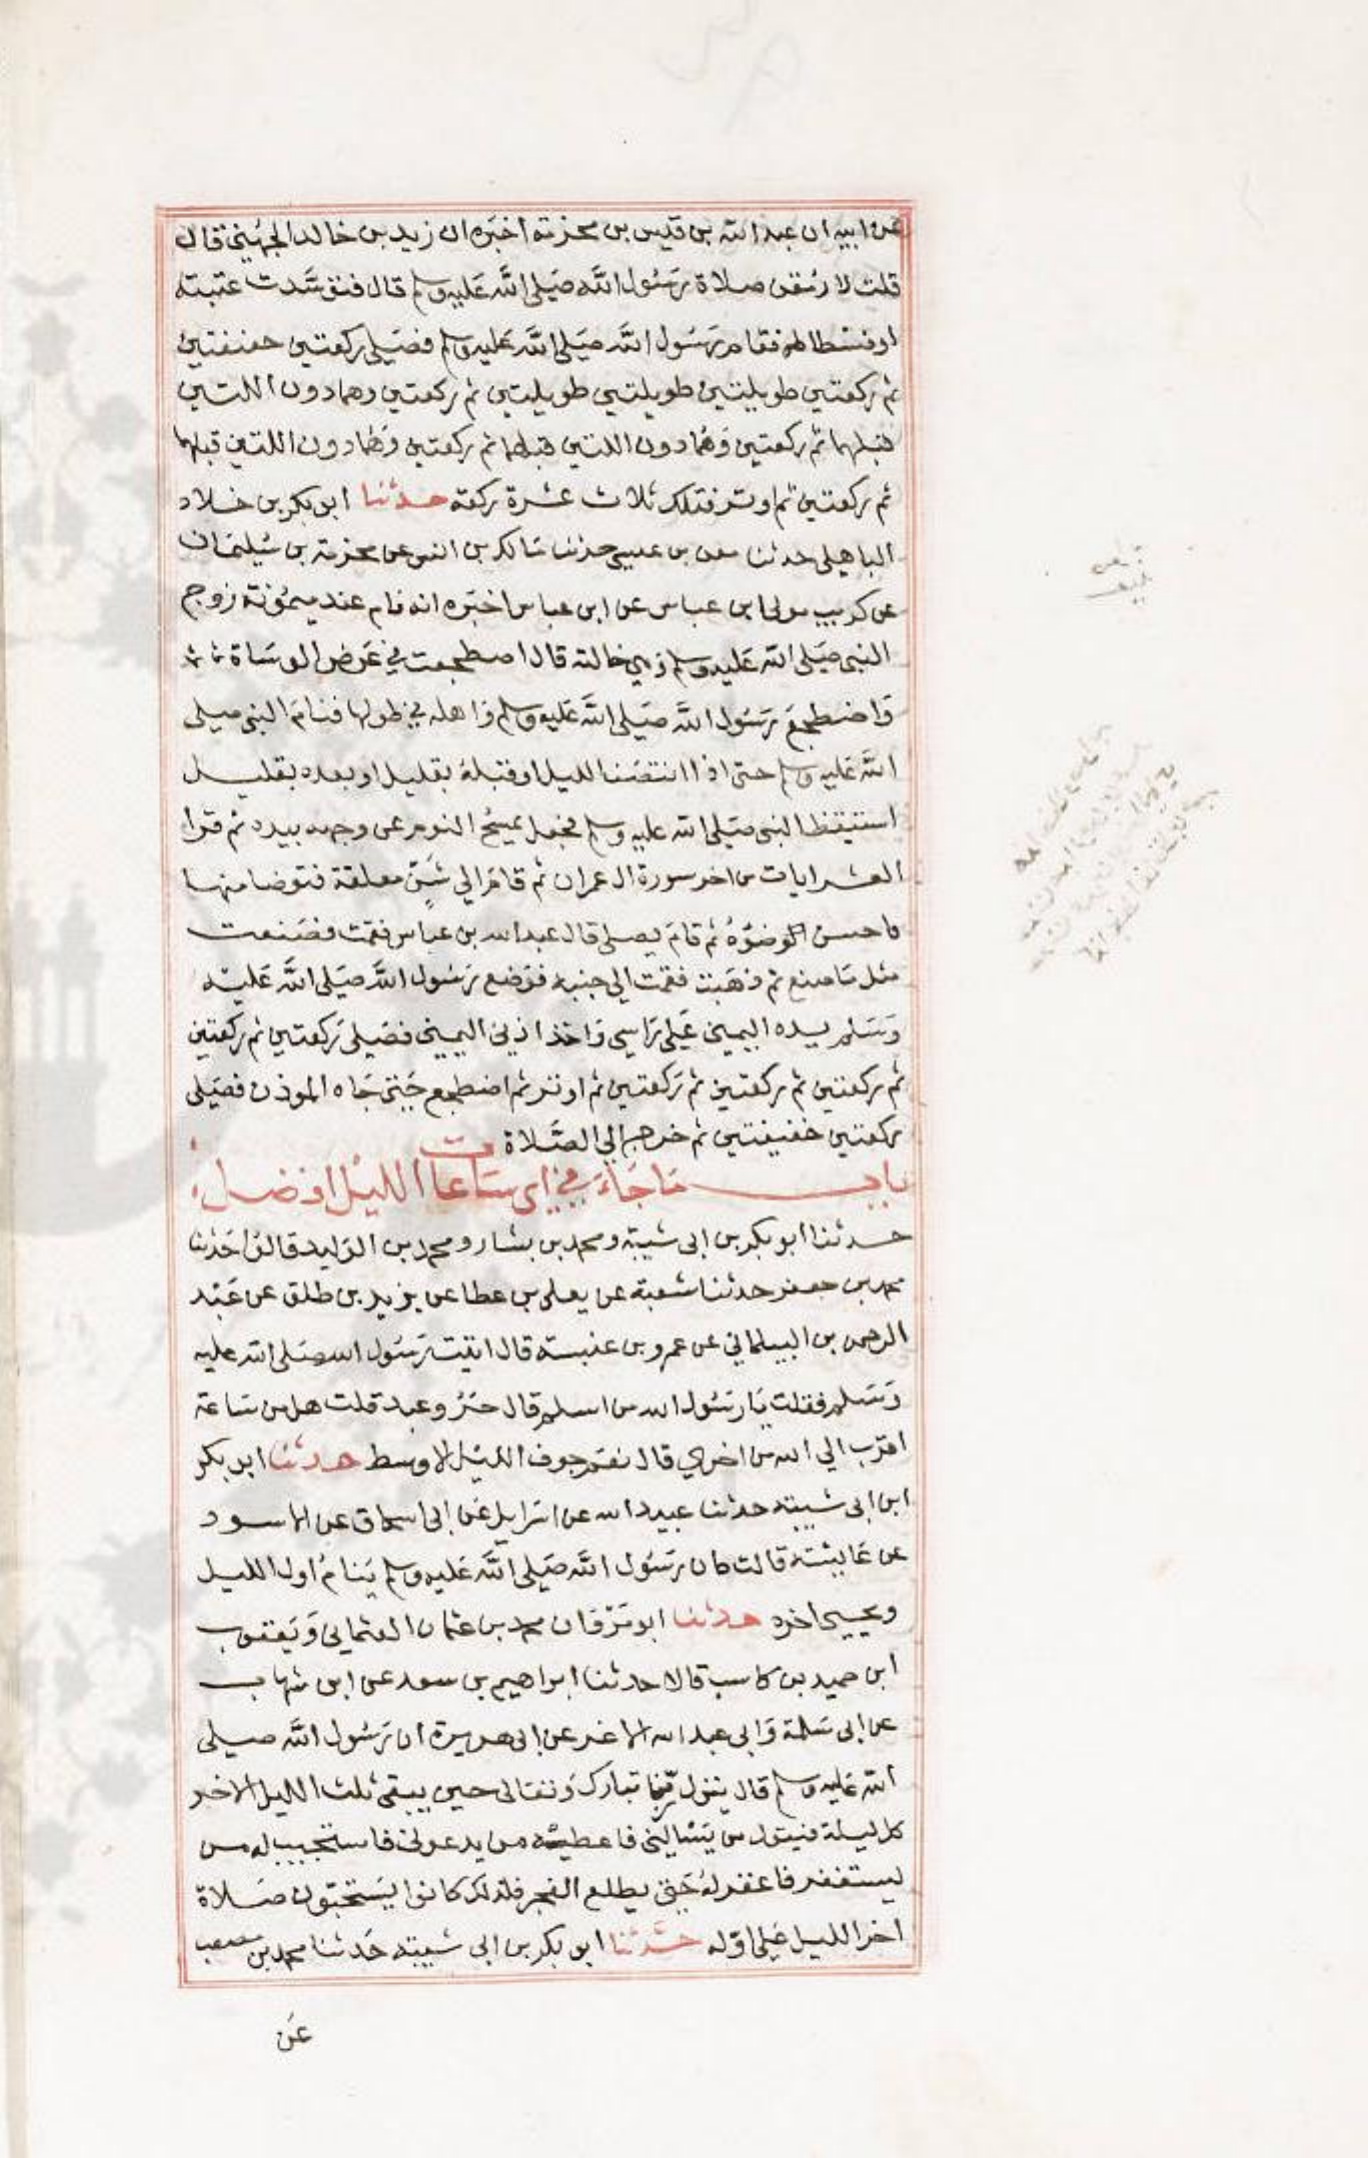 عن ابيه ان عبد الله بن قيس بن مخرمة اخبره ان زيد بن خالد الجهني قال
قلت لارمقن صلاة رسول الله صلى الله عليه وسلم قال فتوسدت عتبته
او فسطاطه فقام رسول الله صلى الله عليه وسلم فصلى ركعتين خفيفتين
ثم ركعتين طويلتين طويلتين طويلتين ثم ركعتين وهما دون اللتين
قبلهما ثم ركعتين وهما دون اللتين قبلهما ثم ركعتين وهما دون اللتين قبلهما
ثم ركعتين ثم اوتر فتلك ثلاث عشرة ركعة حدثنا ابو بكر بن خلاد
الباهلي حدثنا معن بن عيسى حدثنا مالك بن انس عن مخرمة بن سليمان
عن كريب مولى ابن عباس عن ابن عباس اخبره انه نام عند ميمونة زوج
النبي صلى الله عليه وسلم وهي خالته قال اضطجعت في عرض الوسادة
واضطجع رسول الله صلى الله عليه وسلم واهله في طولها فنام النبي صلى
الله عليه وسلم حتى اذا انتصف الليل او قبله بقليل او بعده بقليل
استيقظ النبي صلى الله عليه وسلم فجعل يمسح النوم عن وجهه بيده ثم قرا
العشر ايات من اخر سورة ال عمران ثم قام الي شن معلقة فتوضا منها
فاحسن الوضوء ثم قام يصلي قال عبد الله بن عباس فقمت فصنعت
مثل ما صنع ثم ذهبت فقمت الى جنبه فوضع رسول الله صلى الله عليه
وسلم يده اليمنى على راسي واخذ اذني اليمنى فصلى ركعتين ثم ركعتين
ثم ركعتين ثم ركعتين ثم ركعتين ثم اوتر ثم اضطجع حتى جاه الموذن فصلى
ركعتين خفيفتين ثم خرج الي الصلاة
باب ما جاء في اي ساعات الليل افضل
حدثنا ابو بكر بن ابي شيبة ومحمد بن بشار ومحمد بن الوليد قالوا حدثنا
محمد بن جعفر حدثنا شعبة عن يعلى بن عطا عن يزيد بن طلق عن عبد
الرحمن بن البيلماني عن عمرو بن عنبسة قال اتيت رسول الله صلى الله عليه
وسلم فقلت يا رسول الله من اسلم قال حر وعبد قلت هل من ساعة
اقرب الي الله من اخري قال نعم جوف الليل الاوسط حدثنا ابو بكر
ابن ابي شيبة حدثنا عبيد الله عن اسرايل عن ابي اسحاق عن الاسود
عن عايشة قالت كان رسول الله صلى الله عليه وسلم ينام اول الليل
ويحيي اخره حدثنا ابو مروان محمد بن عثمان العثماني ويعقوب
ابن حميد بن كاسب قالا حدثنا ابراهيم بن سعد عن ابن شهاب
عن ابي سلمة وابي عبد الله الاغر عن ابي هريرة ان رسول الله صلى
الله عليه وسلم قال ينزل ربنا تبارك وتعالى حين يبقى ثلث الليل الاخر
كل ليلة فيقول من يسالني فاعطيه من يدعوني فاستجيب له من
يستغفر فاغفر له حتى يطلع الفجر فلذلك كانوا يستحبون صلاة
اخر الليل على اوله حدثنا ابو بكر بن ابي شيبة حدثنا محمد بن مصعب
عن